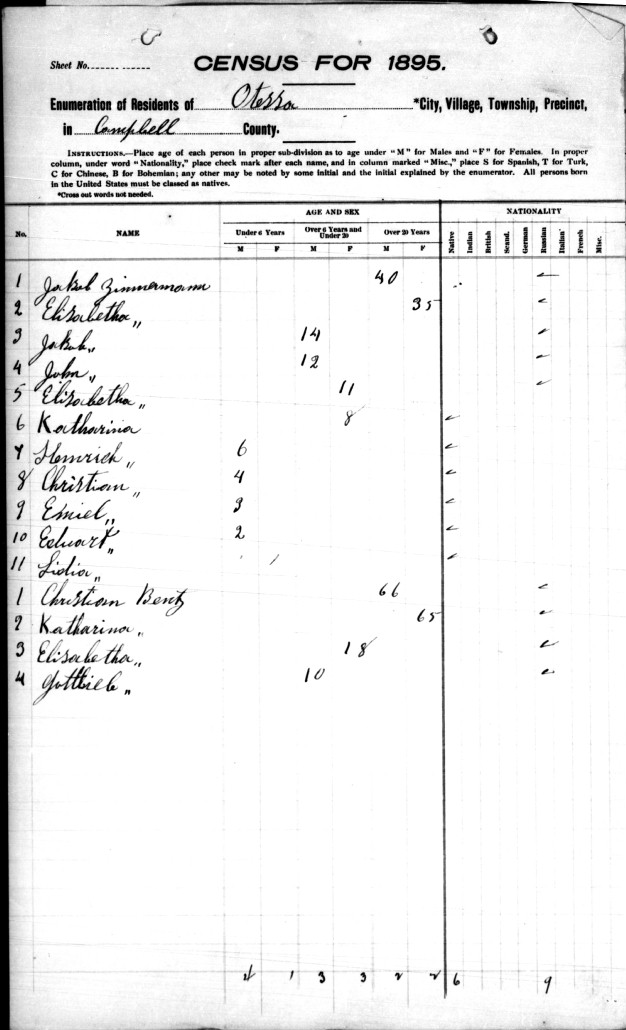 Sheet No.
CENSUS FOR 1895.
Enumeration of Residents of Oterra *City, Village, Township, Precinct,
in Campbell County.
INSTRUCTIONS.—Place age of each person in proper sub-division as to age under "M" for Males and "F" for Females. In proper
column, under word "Nationality," place check mark after each name, and in column marked "Misc.," place S for Spanish, T for Turk,
C for Chinese, B for Bohemian; any other may be noted by some initial and the initial explained by the enumerator. All persons born
in the United States must be classed as natives.
*Cross out words not needed.
AGE AND SEX NATIONALITY
No. NAME Under 6 Years Over 6 Years and Under 20 Over 20 Years Native Indian British Scand. German Russian Italian French Misc.
M F M F M F
1 Jakob Zimmermann 40 ✓
2 Elisabetha „ 35 ✓
3 Jakob „ 14 ✓
4 John „ 12 ✓
5 Elisabetha „ 11 ✓
6 Katharina 8 ✓
7 Heinrich „ 6 ✓
8 Christian „ 4 ✓
9 Emiel „ 3 ✓
10 Eduart „ 2 ✓
11 Lidia „ 1 ✓
1 Christian Bentz 66 ✓
2 Katharina „ 65 ✓
3 Elisabetha „ 18 ✓
4 Gottlieb „ 10 ✓
4 1 3 3 2 2 6 9